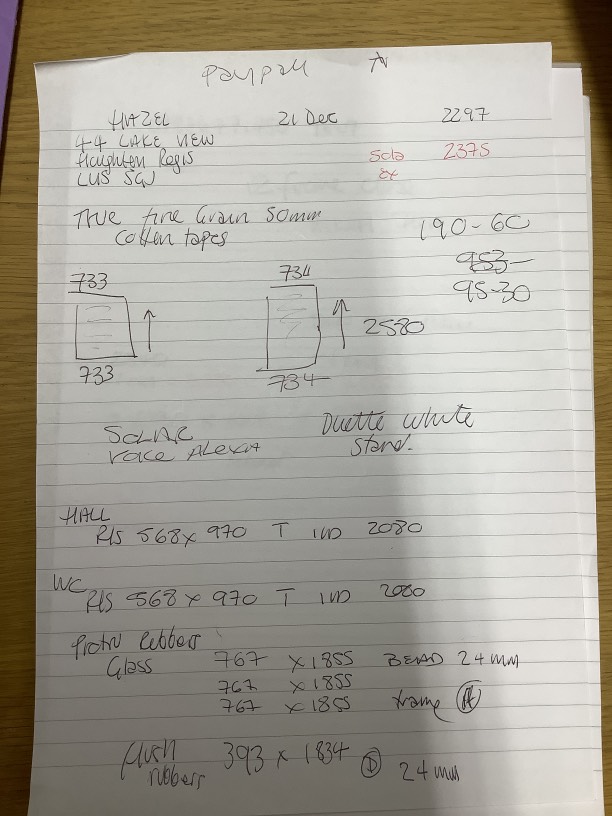 Paypal
HAZEL 21 Dec 2297
44 LAKE VIEW
Houghton Regis Sola 2375
LU5 5GJ ex
True fine Grain 50mm
Cotten tapes
190-60
953-
95-30
733 734
2580
733 734
SOLAR Duette white
Voice Alexa Stand.
HALL
R/S 568 x 970 T IND 2080
WC
R/S 568 x 970 T IND 2080
Rubbers
Glass 767 x 1855 BEAD 24mm
767 x 1855
767 x 1855 frame A
flush 393 x 1834 D 24mm
rubbers